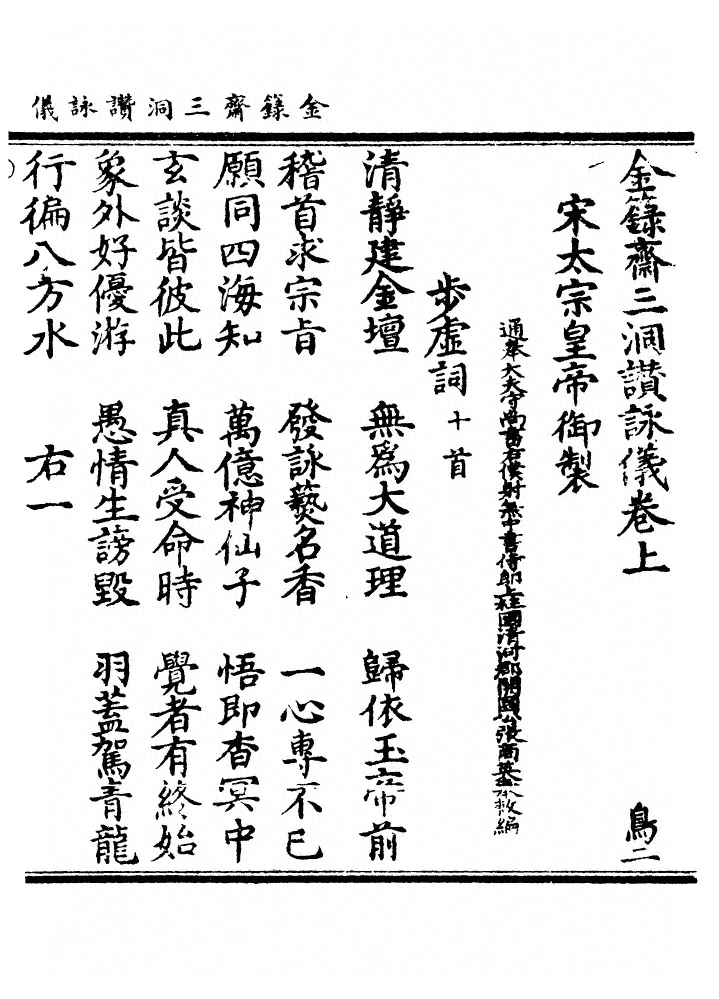 金籙齋三洞讚詠儀
金籙齋三洞讚詠儀卷上 鳥二
宋太宗皇帝御製
通奉大夫守尚書右僕射兼中書侍郎上柱國清河郡開國公張商英奉敕編
步虛詞十首
清靜建金壇 無為大道理 歸依玉帝前
稽首求宗旨 發詠爇名香 一心專不已
願同四海知 萬億神仙子 悟即杳冥中
玄談皆彼此 真人受命時 覺者有終始
象外好優游 愚情生謗毀 羽蓋駕青龍
行徧八方水 右一